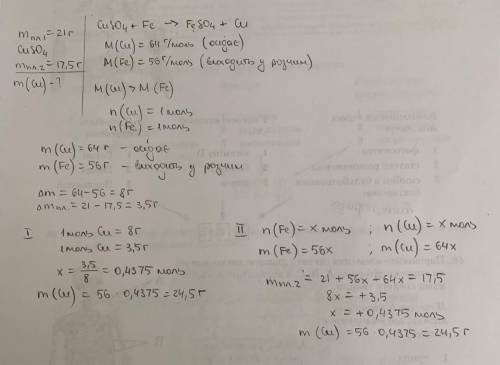 mпл.1 = 21г
CuSO4
mпл.2 = 17,5г
m(Cu) - ?
CuSO4 + Fe → FeSO4 + Cu
M(Cu) = 64 г/моль (осідає)
M(Fe) = 56 г/моль (виходить у розчин)
M(Cu) > M(Fe)
n(Cu) = 1 моль
n(Fe) = 1 моль
m(Cu) = 64г - осідає
m(Fe) = 56г - виходить у розчин
Δm = 64 - 56 = 8г
Δmпл. = 21 - 17,5 = 3,5г
I
1 моль Cu = 8г
1 моль Cu = 3,5г
x = 3,5/8 = 0,4375 моль
m(Cu) = 56 · 0,4375 = 24,5г
II
n(Fe) = x моль ; n(Cu) = x моль
m(Fe) = 56x ; m(Cu) = 64x
mпл.2 = 21 + 56x - 64x = 17,5
8x = +3,5
x = +0,4375 моль
m(Cu) = 56 · 0,4375 = 24,5г